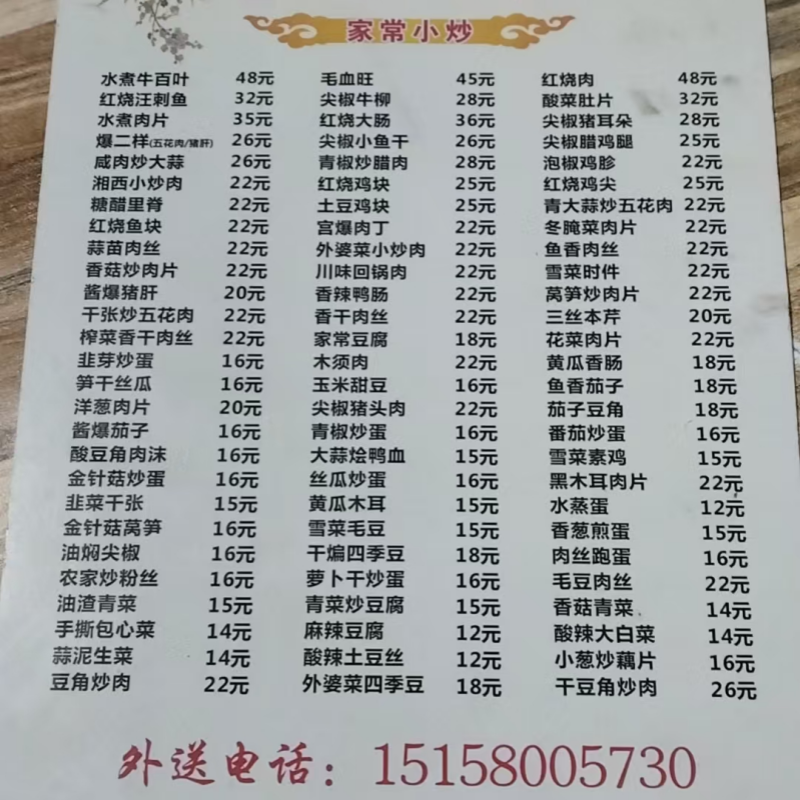 家常小炒
水煮牛百叶 48元 毛血旺 45元 红烧肉 48元
红烧汪刺鱼 32元 尖椒牛柳 28元 酸菜肚片 32元
水煮肉片 35元 红烧大肠 36元 尖椒猪耳朵 28元
爆二样(五花肉/猪肝) 26元 尖椒小鱼干 26元 尖椒腊鸡腿 25元
咸肉炒大蒜 26元 青椒炒腊肉 28元 泡椒鸡胗 22元
湘西小炒肉 22元 红烧鸡块 25元 红烧鸡尖 25元
糖醋里脊 22元 土豆鸡块 25元 青大蒜炒五花肉 22元
红烧鱼块 22元 宫爆肉丁 22元 冬腌菜肉片 22元
蒜苗肉丝 22元 外婆菜小炒肉 22元 鱼香肉丝 22元
香菇炒肉片 22元 川味回锅肉 22元 雪菜时件 22元
酱爆猪肝 20元 香辣鸭肠 22元 莴笋炒肉片 22元
干张炒五花肉 22元 香干肉丝 22元 三丝本芹 20元
榨菜香干肉丝 22元 家常豆腐 18元 花菜肉片 22元
韭芽炒蛋 16元 木须肉 22元 黄瓜香肠 18元
笋干丝瓜 16元 玉米甜豆 16元 鱼香茄子 18元
洋葱肉片 20元 尖椒猪头肉 22元 茄子豆角 18元
酱爆茄子 16元 青椒炒蛋 16元 番茄炒蛋 16元
酸豆角肉沫 16元 大蒜烩鸭血 15元 雪菜素鸡 15元
金针菇炒蛋 16元 丝瓜炒蛋 16元 黑木耳肉片 22元
韭菜干张 15元 黄瓜木耳 15元 水蒸蛋 12元
金针菇莴笋 16元 雪菜毛豆 15元 香葱煎蛋 15元
油焖尖椒 16元 干煸四季豆 18元 肉丝跑蛋 16元
农家炒粉丝 16元 萝卜干炒蛋 16元 毛豆肉丝 22元
油渣青菜 15元 青菜炒豆腐 15元 香菇青菜 14元
手撕包心菜 14元 麻辣豆腐 12元 酸辣大白菜 14元
蒜泥生菜 14元 酸辣土豆丝 12元 小葱炒藕片 16元
豆角炒肉 22元 外婆菜四季豆 18元 干豆角炒肉 26元
外送电话：15158005730